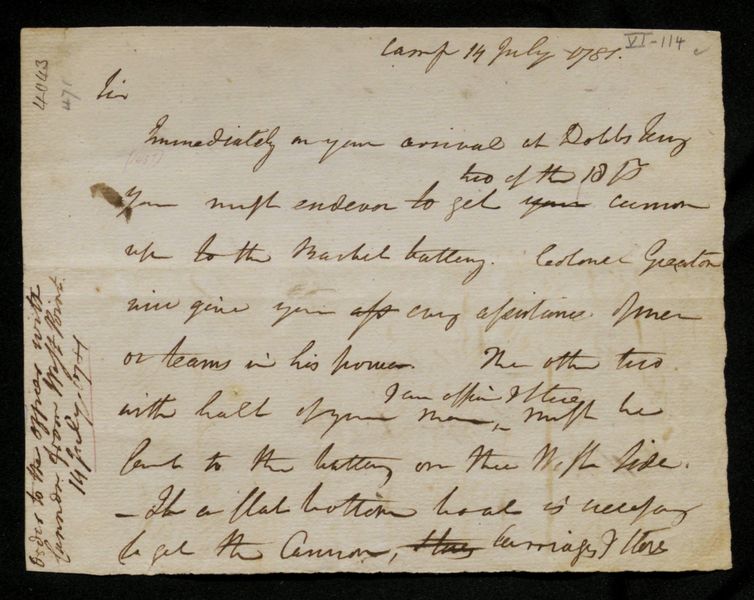 Camp 14 July 1781.
VI-114
4043
471
Sir
Immediately on your arrival at Dobbs ferry
two of the 18 P
You must endevor to get your cannon
up to the Barbet battery. Colonel Greaton
will give you ass every assistance of men
or teams in his power. The other two
I am officer & stores
with half of your men, must be
sent to the battery on the West Side.
- If a flat bottom boat is necessary
to get the Cannon, Stores Carriages & Stores
Order to the Officer with
Cannon from West Point.
14 July. 1781